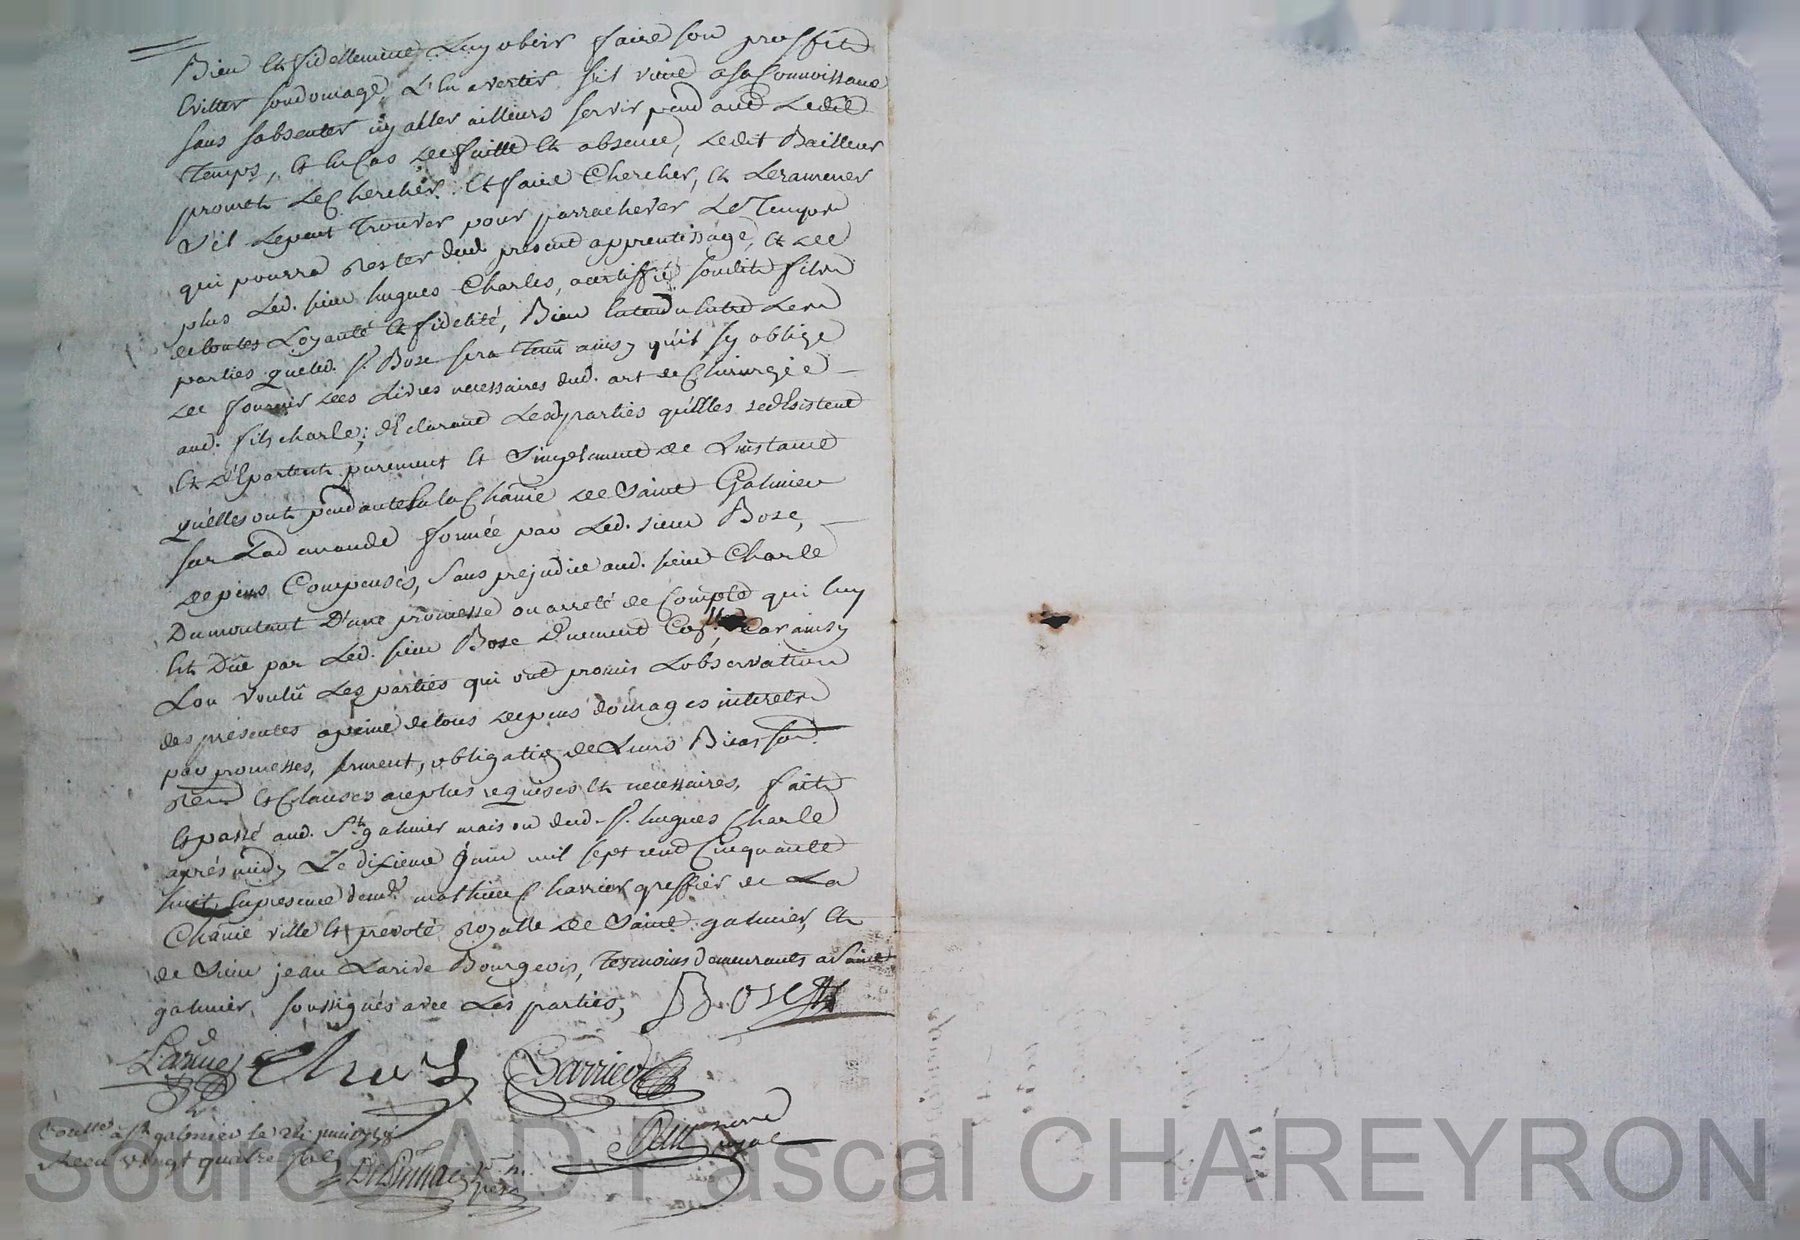 Bien et fidellement Luy obeir faire son proffit
Eviter son domage, L'en avertir s'il vient a sa Connoissance
sans sabsenter ny aller ailleurs servir pendant Ledit
Temps, et En Cas de fuitte et absence, Ledit Bailleur
promet Le Chercher et faire Chercher, et Le ramener
s'il Le peut Trouver pour parrachever Le Temps
qui pourra Rester dud. present apprentissage, et de
plus Led. sieur hugues Charles, a certiffié soudit fils
de toutes Loyauté et fidelité, Bien Entendu Entre Les
parties que led. sr. Bose sera Tenu ainsy qu'il sy oblige
de fournir Les Livres necessaires dud. art de Chirurgie
aud. fils charle; déclarant Lesd. parties qu'Elles se desistent
et départent purement et simplement de L'instance
qu'elles ont pendante En la Chanie de Saint Galmier
sur La demande formée par Led. sieur Bose,
depens Compensés, sans prejudice aud. sieur Charle
Du montant D'une promesse ou arreté de Compte qui luy
Est Düe par Led. sieur Bose Dument Car ainsy
L'on voulu Les parties qui ont promis L'observation
des presentes a peine de tous depens domages interets
par promesses, serment, obligation de Leurs Biens
Ren. et Clauses au plus requises et necessaires, fait
et passé aud. St. galmier maison dud. sr. hugues Charle
aprés midy Le dixieme Juin mil sept cend Cinquante
huit, En presence de mathieu Charrier greffier de La
Chanie ville et prevoté Royalle de Saint galmier, et
de Sieur jean Larive Bourgeois, Tesmoins demeurants a Saint
galmier, soussignés avec Les parties,
Bose
Larive
Charrier
Coullé à St galmier le 24 juin 1758
Receu vingt quatre sols
Source AD Pascal CHAREYRON